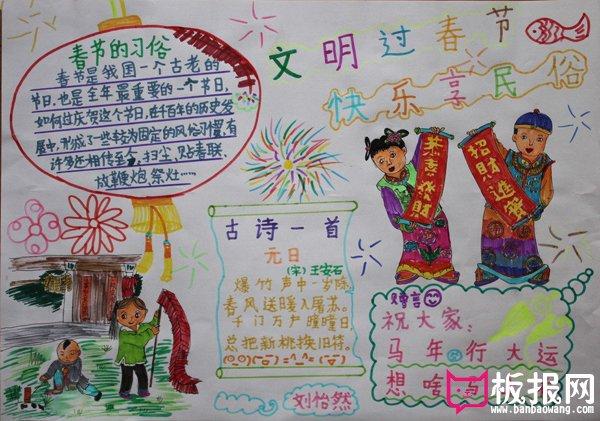 文明过春节
快乐享民俗
春节的习俗
春节是我国一个古老的
节日,也是全年最重要的一个节日,
如何过庆贺这个节日,在千百年的历史发
展中,形成了一些较为固定的风俗习惯,有
许多还相传至今,扫尘,贴春联,
放鞭炮,祭灶……
恭喜發財
招財進寶
古诗一首
元日
(宋)王安石
爆竹声中一岁除,
春风送暖入屠苏。
千门万户曈曈日,
总把新桃换旧符。
赠言
祝大家:
马年行大运
想啥
刘怡然
板报网
www.banbaowang.com